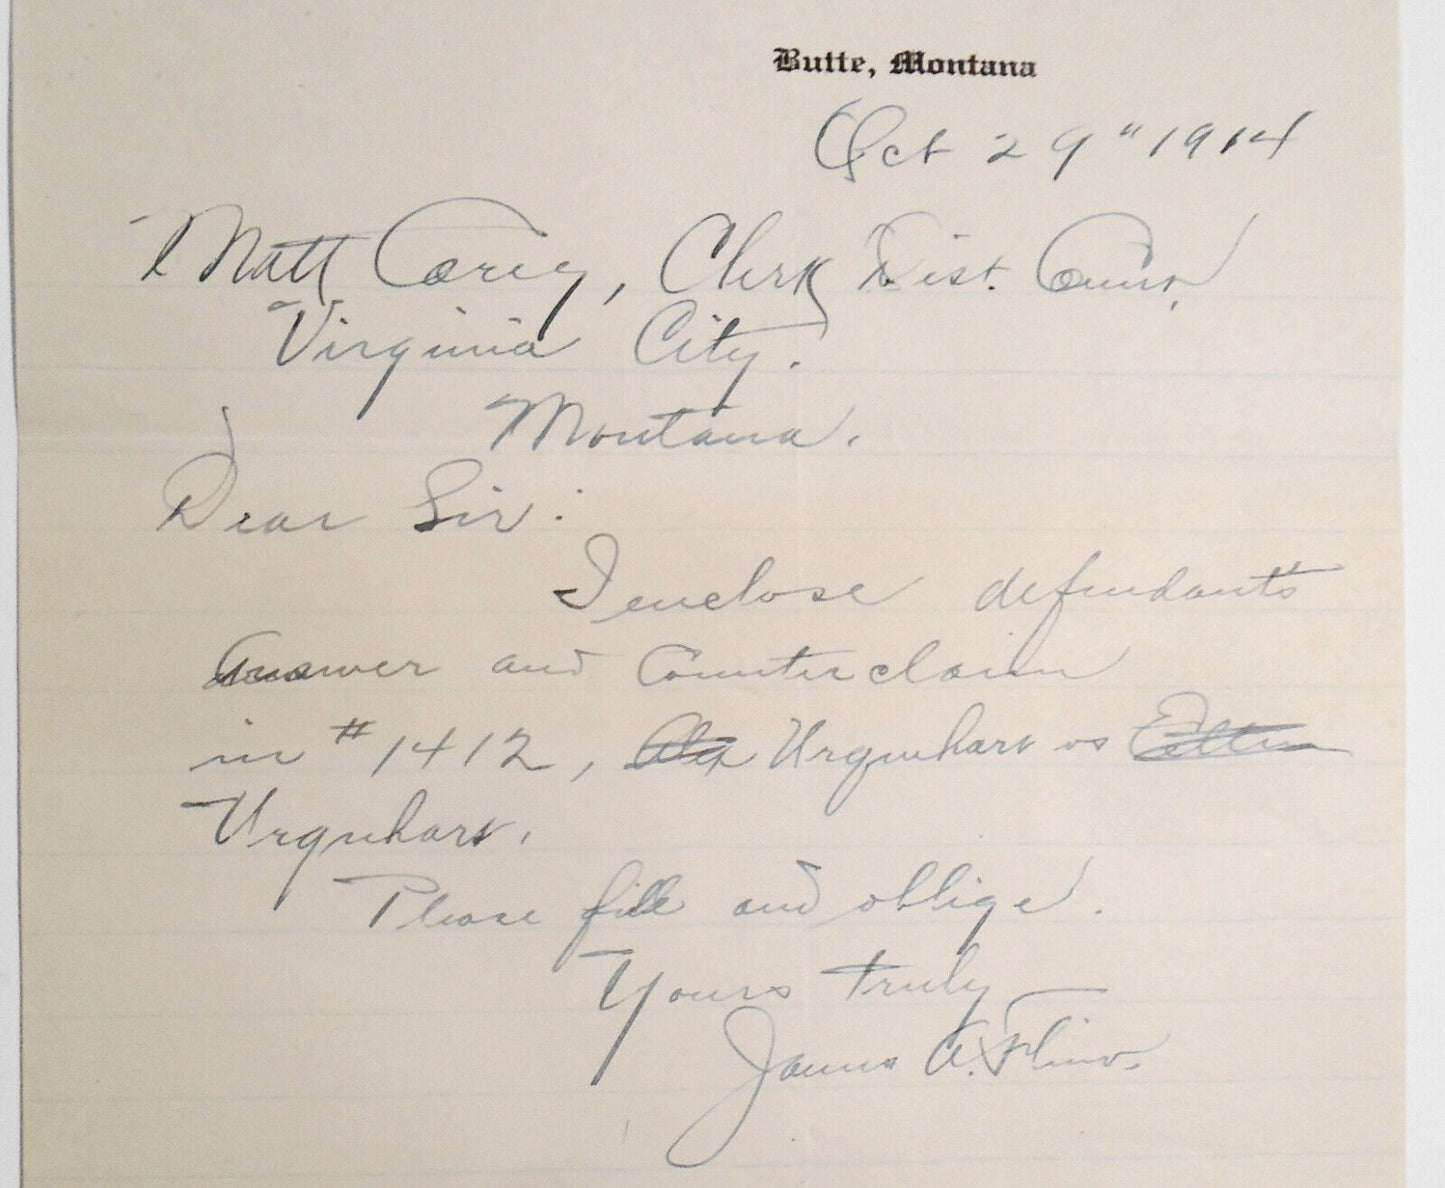 Butte, Montana
Oct 29" 1914
Matt Carey, Clerk Dist. Court,
Virginia City.
Montana.
Dear Sir:
I enclose defendants
Answer and Counterclaim
in #1412, Urquhart vs
Urquhart.
Please file and oblige.
Yours truly
James A.